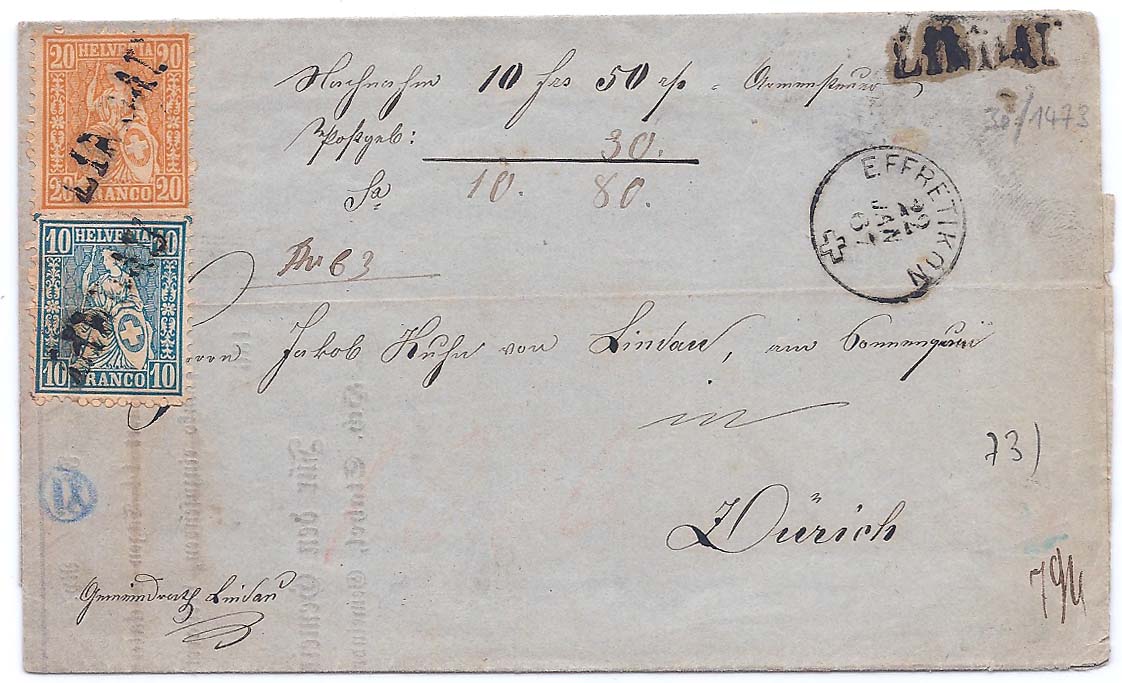 20 HELVETIA 20
20 FRANCO 20
LINDAU
10 HELVETIA 10
10 FRANCO 10
LINDAU
Nachnahm 10 frs 50 rp - Armensteuer
Postgeb: 30.
Sa 10. 80.
No 63
EFFRETIKON
22
JAN
67
Herrn Jakob Kuhn von Lindau, am Sonnenquai
in
Zürich
Gemeindrath Lindau
73)
IX